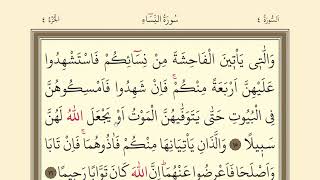 السُّورَةُ ٤ سُورَةُ النِّسَٓاءِ الْجُزْءُ ٤
وَالّٰت۪ي يَأْت۪ينَ الْفَاحِشَةَ مِنْ نِسَٓائِكُمْ فَاسْتَشْهِدُوا
عَلَيْهِنَّ اَرْبَعَةً مِنْكُمْۚ فَاِنْ شَهِدُوا فَاَمْسِكُوهُنَّ
فِي الْبُيُوتِ حَتّٰى يَتَوَفّٰيهُنَّ الْمَوْتُ اَوْ يَجْعَلَ اللّٰهُ لَهُنَّ
سَب۪يلًا ١٥ وَالَّذَانِ يَأْتِيَانِهَا مِنْكُمْ فَاٰذُوهُمَاۚ فَاِنْ تَابَا
وَاَصْلَحَا فَاَعْرِضُوا عَنْهُمَاۜ اِنَّ اللّٰهَ كَانَ تَوَّابًا رَح۪يمًا ١٦